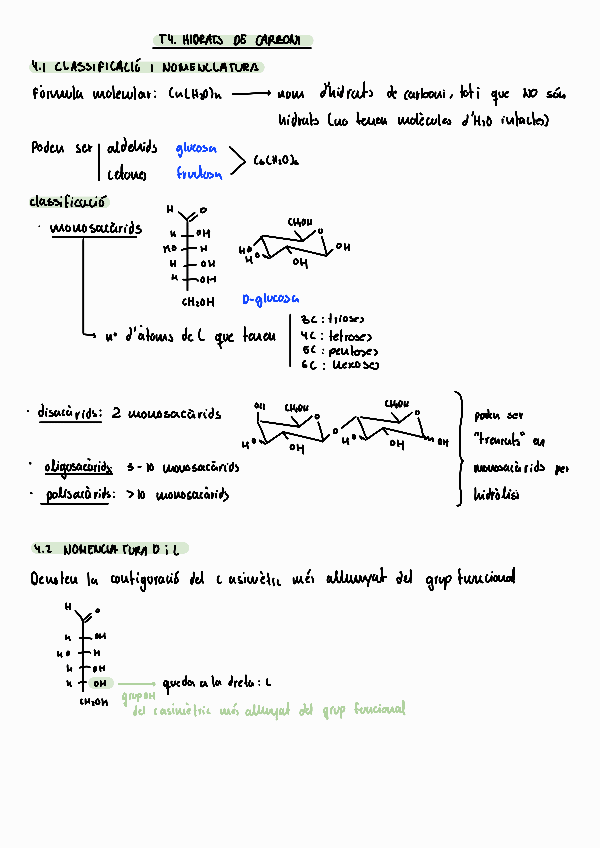 T4. HIDRATS DE CARBONI
4.1 CLASSIFICACIÓ I NOMENCLATURA
Fórmula molecular: Cn(H2O)n → nom d'hidrats de carboni, tot i que NO són
hidrats (no tenen molècules d'H2O intactes)
Poden ser aldehids glucosa
cetones fructosa
C6(H2O)6
classificació
· monosacàrids
H O
H OH
HO H
H OH
H OH
CH2OH
CH2OH
O
HO
HO
OH
OH
D-glucosa
nº d'àtoms de C que tenen
3C: trioses
4C: tetroses
5C: pentoses
6C: hexoses
· disacàrids: 2 monosacàrids
OH CH2OH O HO OH O CH2OH O HO OH OH
poden ser
"trencats" en
monosacàrids per
hidròlisi
· oligosacàrids 3-10 monosacàrids
· polisacàrids: >10 monosacàrids
4.2 NOMENCLATURA D i L
Denoten la configuració del C asimètric més allunyat del grup funcional
H O
H OH
HO H
H OH
H OH → queda a la dreta: L
CH2OH
grup OH
del C asimètric més allunyat del grup funcional